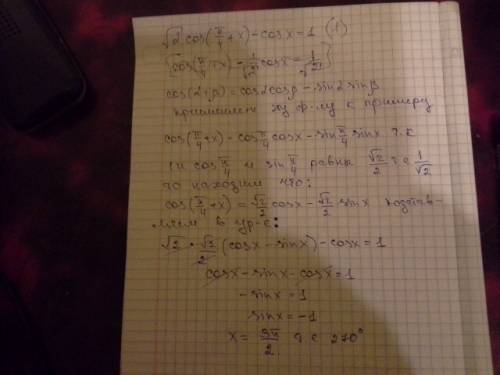 √2 cos(π/4 + x) - cos x = 1 (1)
{cos(π/4 + x) - 1/√2 cos x = 1/√2}
cos(α+β) = cosα cosβ - sinα sinβ
применяем эту ф-лу к примеру
cos(π/4 + x) - cos π/4 cos x - sin π/4 sin x т.к
cos π/4 и sin π/4 равны √2/2 т е 1/√2
то находим что:
cos(π/4 + x) = √2/2 cos x - √2/2 sin x подстав-
ляем в ур-е:
√2 · √2/2 (cos x - sin x) - cos x = 1
cos x - sin x - cos x = 1
- sin x = 1
sin x = -1
x = 3π/2 т е 270°